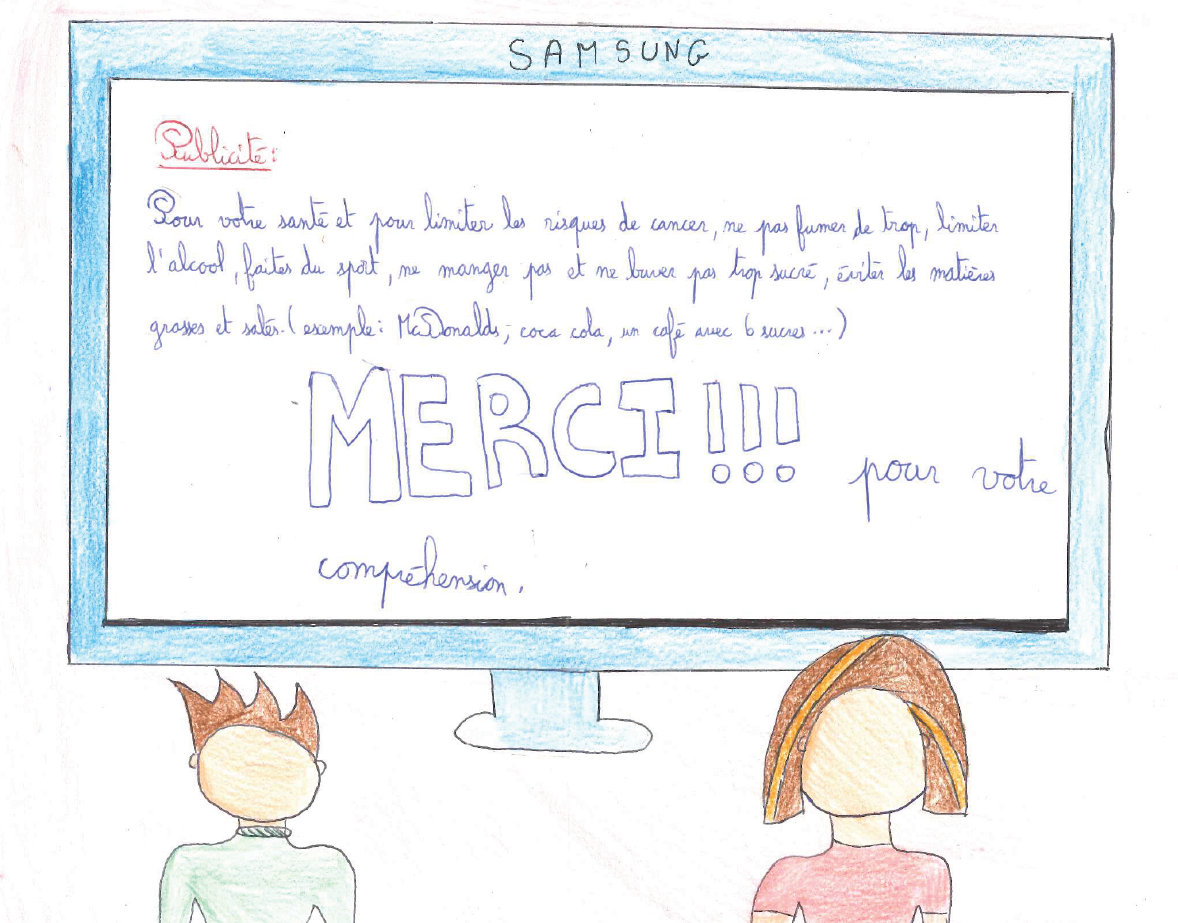 SAMSUNG
Publicité:
Pour votre santé et pour limiter les risques de cancer, ne pas fumer de trop, limiter
l'alcool, faites du sport, ne manger pas et ne buver pas trop sucré, éviter les matières
grasses et salés. (exemple: McDonalds, coca cola, un café avec 6 sucres...)
MERCI!!! pour votre
compréhension.